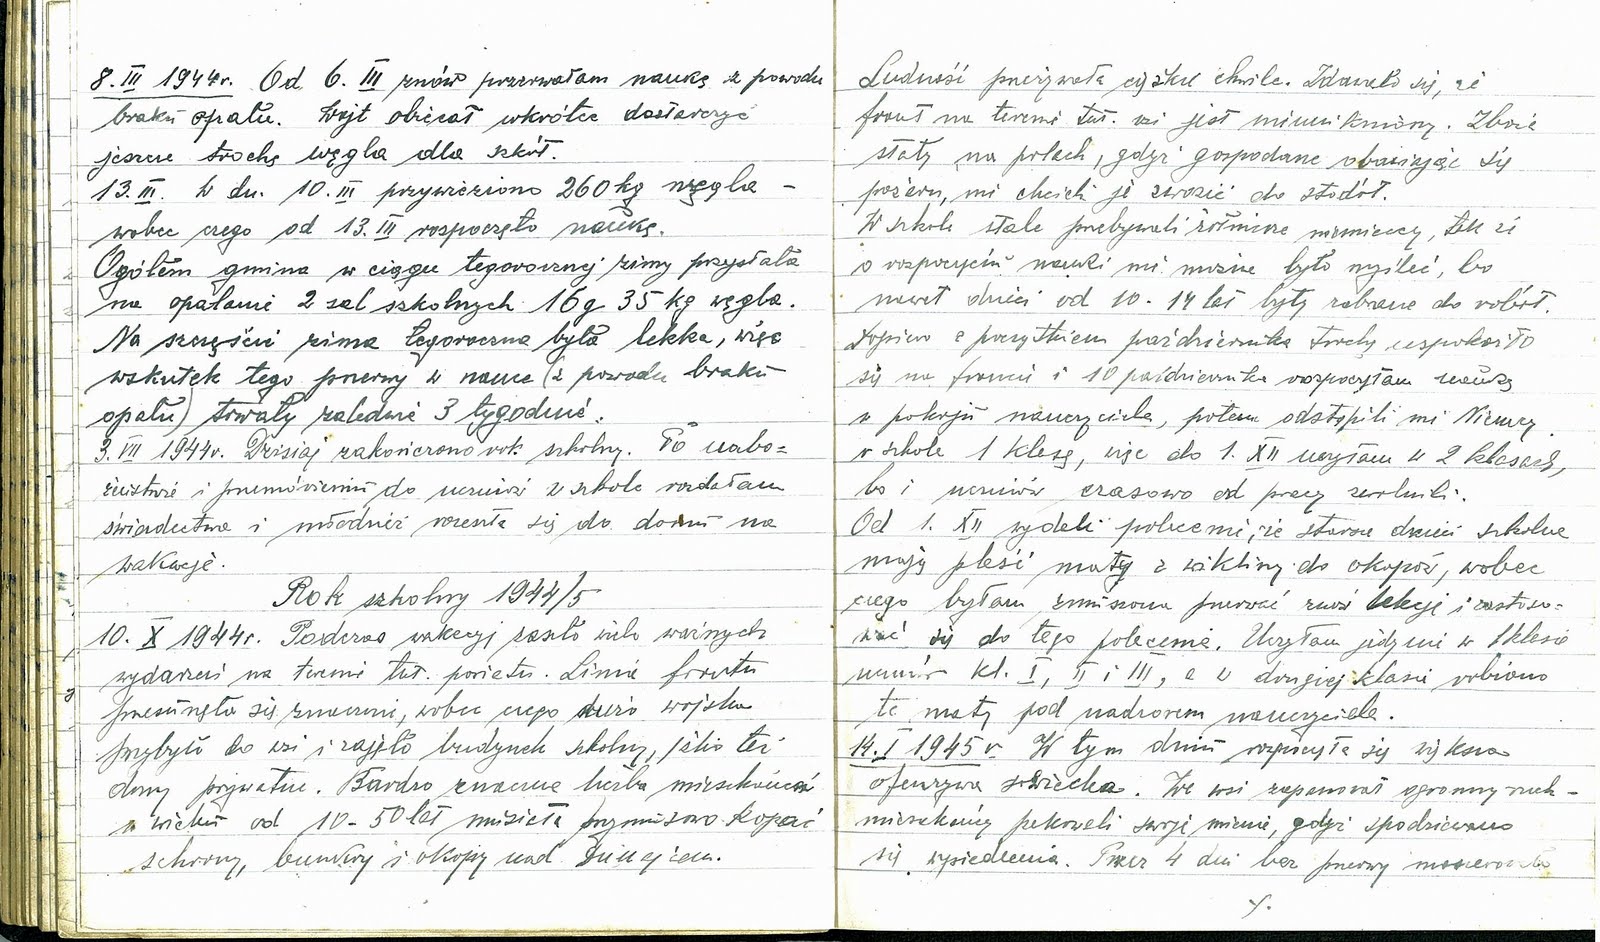 8. III 1944r. Od 6. III znów przerwałam naukę z powodu
braku opału. Wójt obiecał wkrótce dostarczyć
jeszcze trochę węgla dla szkół.
13. III. W dn. 10. III przywieziono 260 kg węgla –
wobec czego od 13. III rozpoczęto naukę.
Ogółem gmina w ciągu tegorocznej zimy przysłała
na opalanie 2 sal szkolnych 16 q 35 kg węgla.
Na szczęście zima tegoroczna była lekka, więc
wskutek tego przerwy w nauce (z powodu braku
opału) trwały zaledwie 3 tygodnie.
3. VII 1944r. Dzisiaj zakończono rok szkolny. Po nabo=
żeństwie i przemówieniu do uczniów w szkole rozdałam
świadectwa i młodzież rozeszła się do domu na
wakacje.
Rok szkolny 1944/5
10. X 1944r. Podczas wakacyj zaszło wiele ważnych
wydarzeń na terenie tut. powiatu. Linia frontu
przesunęła się znacznie, wobec czego dużo wojska
przybyło do wsi i zajęło budynek szkolny, jako też
domy prywatne. Bardzo znaczna liczba mieszkańców
w wieku od 10–50 lat musiała przymusowo kopać
schrony, bunkry i okopy nad Dunajcem.
Ludność przeżywała ciężkie chwile. Zdawało się, że
front na terenie tut. wsi jest nieunikniony. Zboże
stały na polach, gdyż gospodarze obawiając się
pożaru, nie chcieli je zwozić do stodół.
W szkole stale przebywali żołnierze niemieccy, tak że
o rozpoczęciu nauki nie można było myśleć, bo
nawet dzieci od 10–14 lat były zabrane do robót.
Dopiero z początkiem października trochę uspokoiło
się na froncie i 10 października rozpoczęłam naukę
w pokoju nauczyciela, potem odstąpili mi Niemcy
w szkole 1 klasę, więc do 1. XII uczyłam w 2 klasach,
bo i uczniów czasowo od pracy zwolnili.
Od 1. XII wydali polecenie, że starsze dzieci szkolne
mają pleść maty z wikliny do okopów, wobec
czego byłam zmuszona przerwać znów lekcje i zastoso=
wać się do tego polecenia. Uczyłam jedynie w 1 klasie
uczniów kl. I, II i III, a w drugiej klasie robiono
te maty pod nadzorem nauczyciela.
14. I 1945 r. W tym dniu rozpoczęła się większa
ofenzywa sowiecka. We wsi zapanował ogromny ruch –
mieszkańcy pakowali swoje mienie, gdyż spodziewano
się wysiedlenia. Przez 4 dni bez przerwy maszerowało